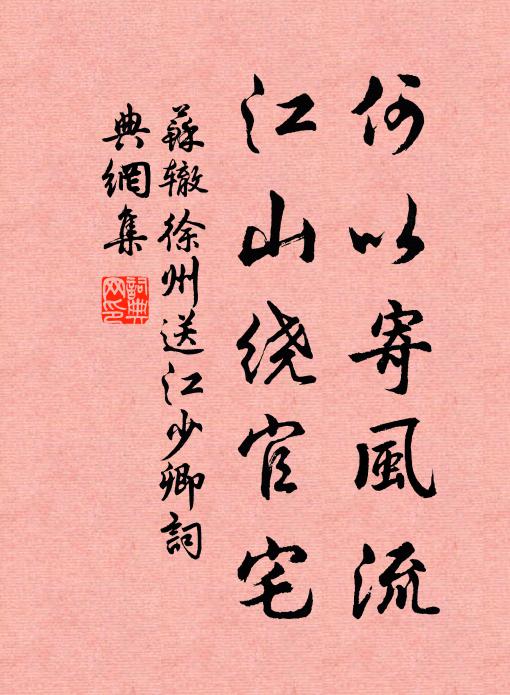 何以寄風流
江山绕官宅
蘇辙徐州送江少卿詞
典網集
詞典网印